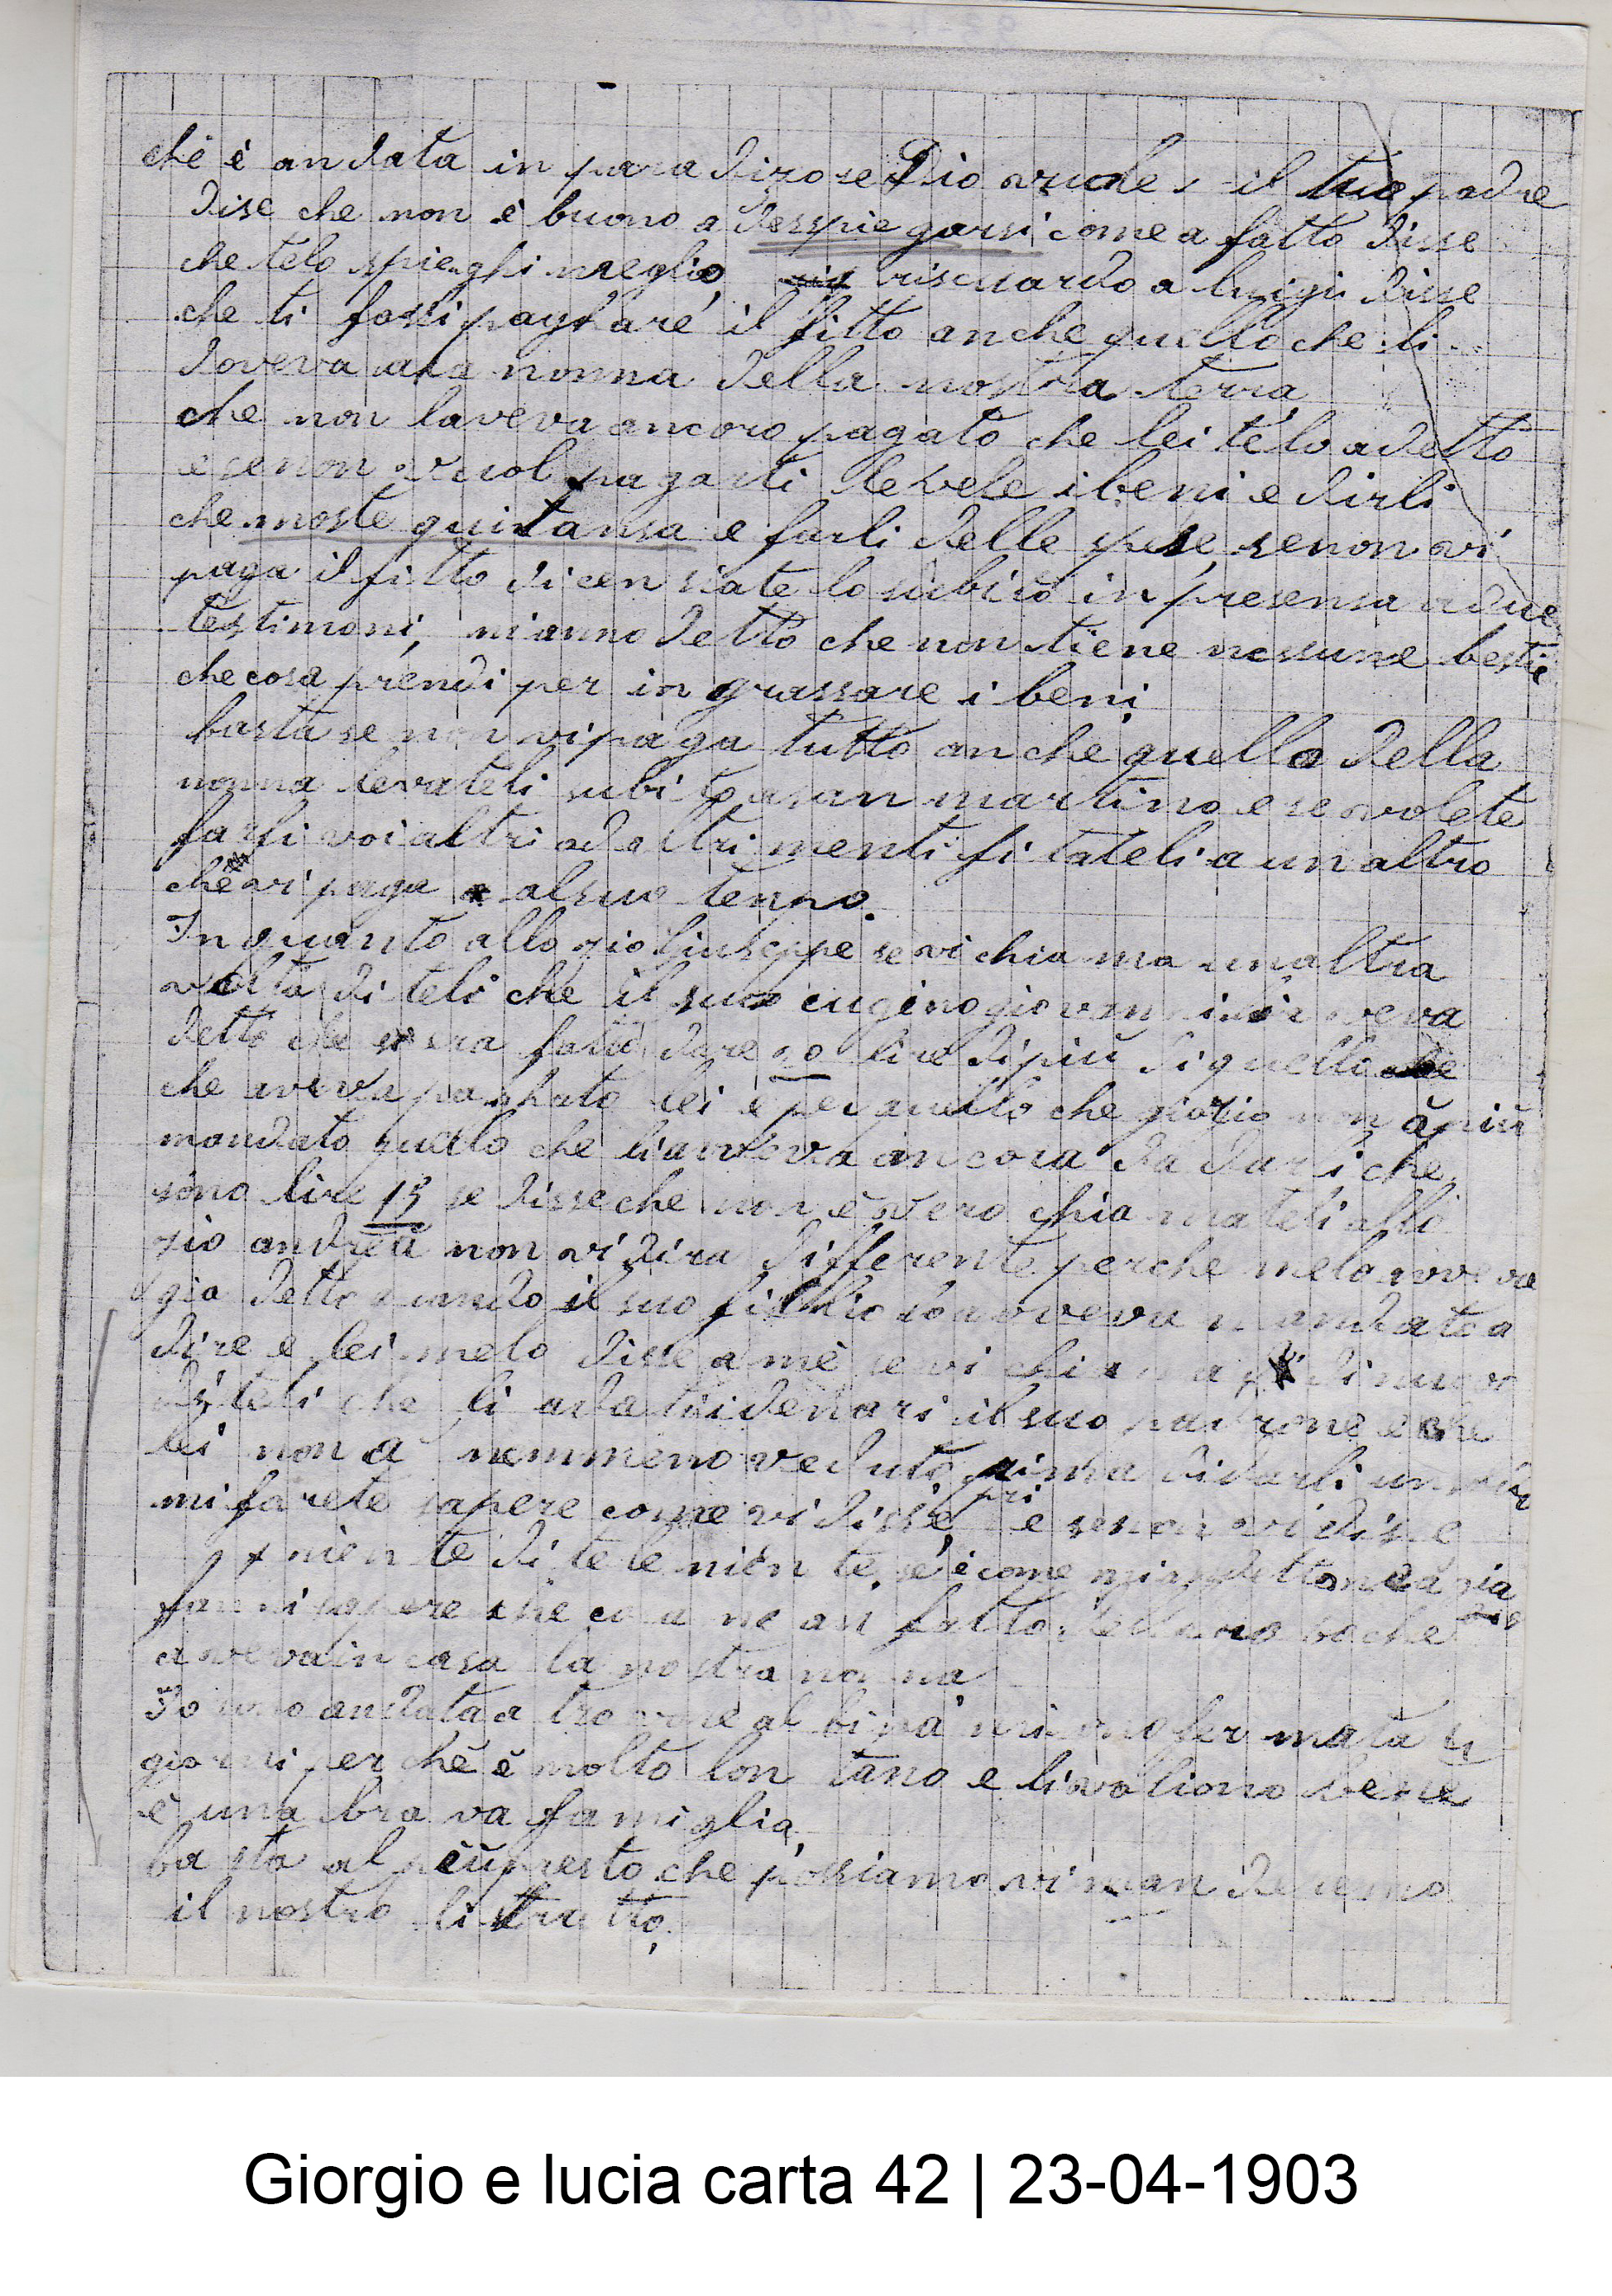 che è andata in paradizo se Dio vuole, il tuo padre
disc che non è buono a desspiegarsi come a fatto disse
che telo spieghi meglio, riscuardo a luigi disse
che ti fassi paghare il fitto anche quello che li
doveva ala nonna della nostra terra
che non laveva ancora pagato che lei telo a detto
e senon vuol pagarti levele i beni e dirli
che moste quitansa e farli delle spese, senon vi
paga il fitto dicensiatelo subito in presensa a due
testimoni, mi anno detto che non tiene nessune bestie
che cosa prendi per in grassare i beni
basta se non vi paga tutto anche quello della
nonna levateli subito a san martino e se volete
farli voi altri ad altrimenti fitateli a un altro
che vi paga al suo tenpo.
In quanto allo zio Giuseppe se vi chiama unaltra
volta diteli che il suo cugino giovanni
detto che era fato dare lire di più di quello
che aveva paghato lei è per quello che giorio non à più
mandato quello che li aveva ancora da darli che
sono lire 15 se disse che non è vero chiamateli allo
zio andrea non vi dira differente perche melo aveva
gia detto quando il suo fighio lo aveva mandato a
dire e lei melo disse a mè se vi chiama di nuovo
diteli che li a dati i denari il suo padrone e che
lei non a nemmeno veduto prima di darli un
mi farete sapere come vi disse, e senon vi disse
niente ditele niente, se è come mi a detto mea zia
fammi sapere che cosa ne an fatto della roba che
aveva in casa la nostra nonna
Io sono andata a trovare al mi sono fermata
giorni perchè è molto lon tano e li voliono bene
è una bra va famiglia,
basta al più presto che possiamo vi manderemo
il nostro litratto,
Giorgio e lucia carta 42 | 23-04-1903